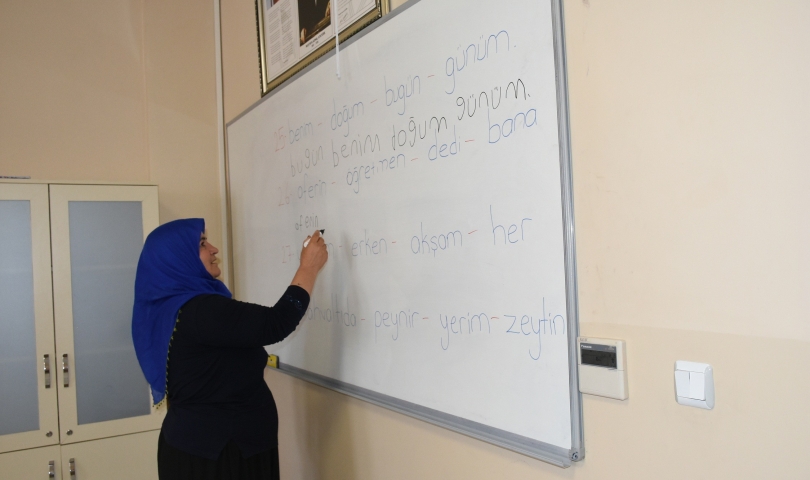 25 benim - doğum - bugün - günüm.
bugün benim doğum günüm.
26 aferin - öğretmen - dedi - bana
aferin
27 - erken - akşam - her
- peynir - yerim - zeytin